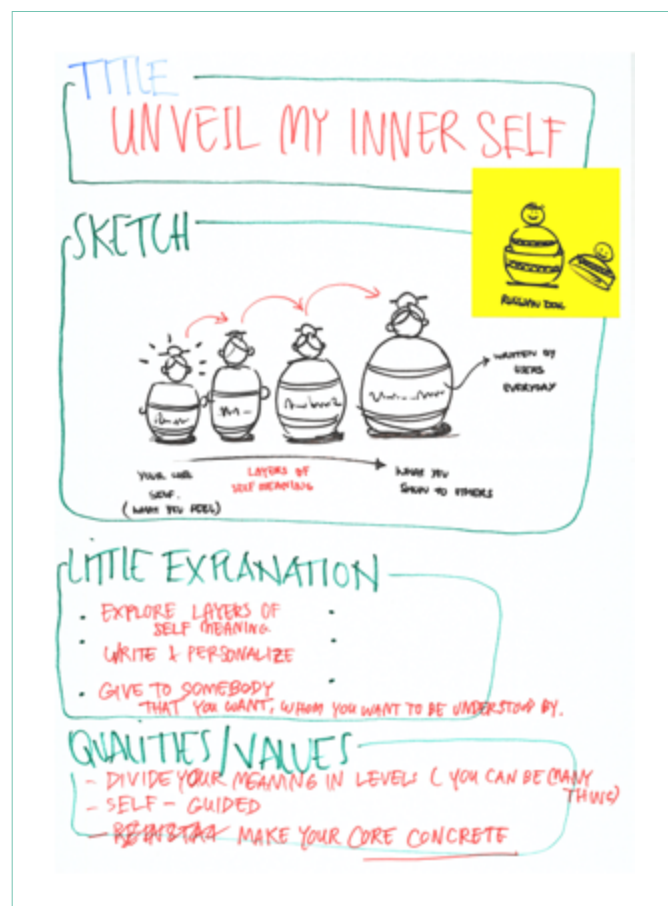 TITLE
UNVEIL MY INNER SELF
SKETCH
RUSSIAN DOLL
WRITTEN BY
USERS
EVERYDAY
YOUR CORE
SELF.
(WHAT YOU FEEL)
LAYERS OF
SELF MEANING
WHAT YOU
SHOW TO OTHERS
LITTLE EXPLANATION
· EXPLORE LAYERS OF
SELF MEANING.
· WRITE & PERSONALIZE
· GIVE TO SOMEBODY
THAT YOU WANT, WHOM YOU WANT TO BE UNDERSTOOD BY.
QUALITIES/VALUES
- DIVIDE YOUR MEANING IN LEVELS ( YOU CAN BE MANY
THING)
- SELF - GUIDED
- MAKE YOUR CORE CONCRETE